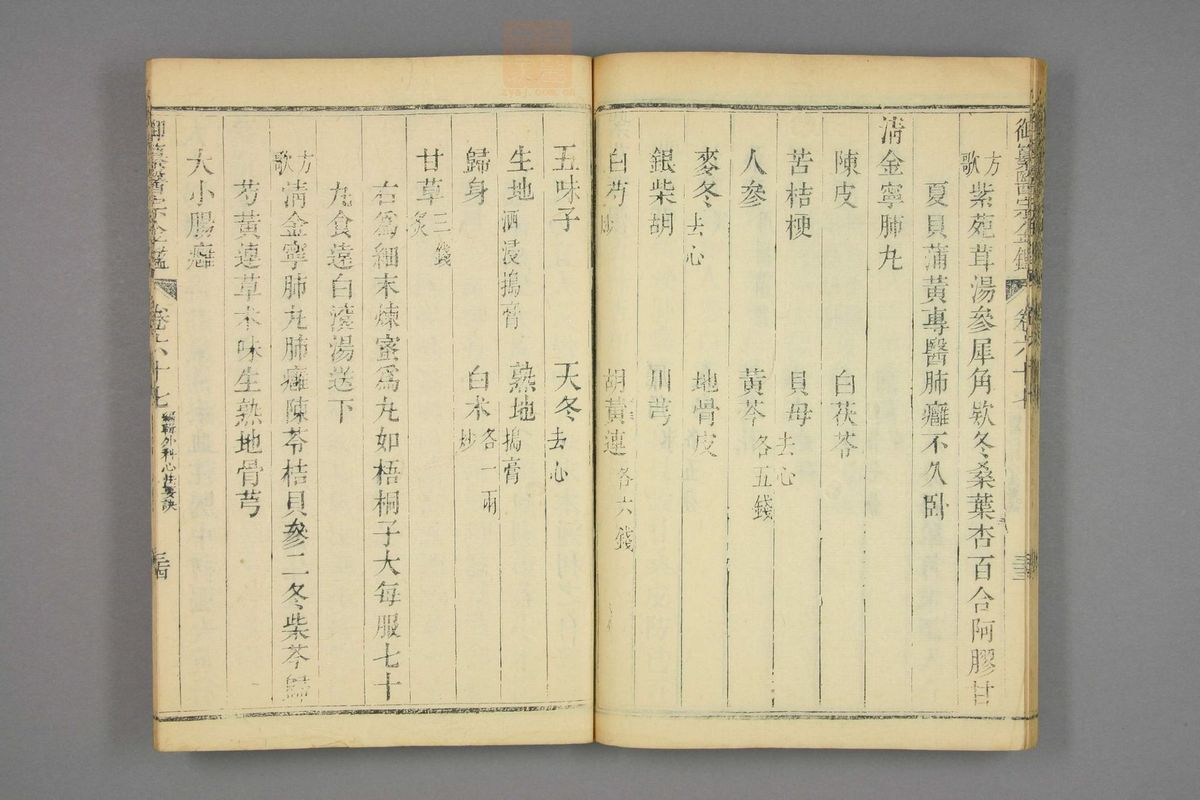 御纂醫宗金鑑 卷六十七 三十三
方歌 紫菀茸湯參犀角欵冬桑葉杏百合阿膠甘
夏貝蒲黃專醫肺癰不久臥
淸金寧肺丸
陳皮 白茯苓
苦桔梗 貝母去心
人參 黃芩各五錢
麥冬去心 地骨皮
銀柴胡 川芎
白芍炒 胡黃連各六錢
五味子 天冬去心
生地酒浸搗膏 熟地搗膏
歸身 白朮炒各一兩
甘草炙三錢
右爲細末煉蜜爲丸如梧桐子大每服七十
丸食遠白滾湯送下
方歌 淸金寧肺丸肺癰陳苓桔貝參二冬柴芩歸
芍黃連草朮味生熟地骨芎
大小腸癰
御纂醫宗金鑑 卷六十七 編輯外科心法要訣 三十四